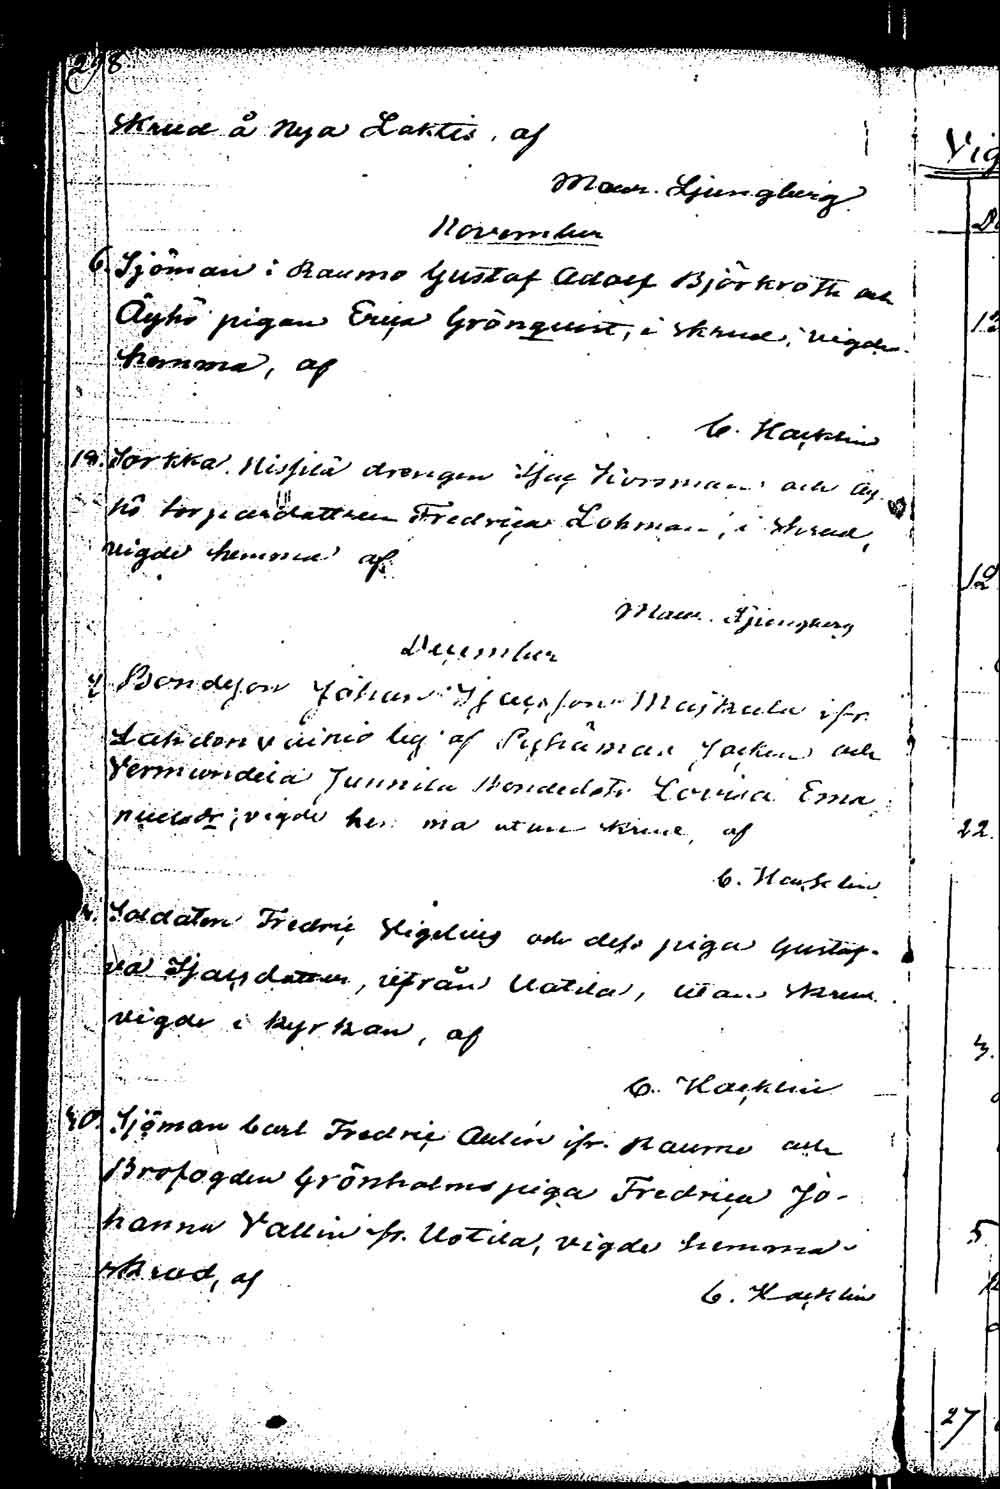 298.
skrud å Nya Laktis, af
Maur. Ljungberg.
November
6. Sjöman i Raumo Gustaf Adolf Björkroth och
Äyhö pigan Erica Grönqvist, i skrud, vigde
hemma, af
C. Hacklin
18. Sorkka Nissilä drengen Isac Korsman och Äy-
hö torparedottren Fredrica Lohman, i skrud,
vigde hemma af
Maur. Ljungberg
December
4. Bondeson Johan Isacsson Maskula ifr.
Lahdenvainio leg af Pyhämaa Socken och
Vermundila Junnila Bondedotr Lovisa Ema
nuelsdr, vigde hemma utan skrud, af
C. Hacklin
Soldaten Fredric Vigelius och dess piga Gustaf-
va Isacsdotter, ifrån Uotila, utan skrud
vigde i kyrkan, af
C. Hacklin
30. Sjöman Carl Fredric Aulin ifr. Raumo och
Brofogden Grönholms piga Fredrica Jo-
hanna Vallin fr. Uotila, vigde hemma i
skrud, af
C. Hacklin
Vig
12
22
3.
5.
27